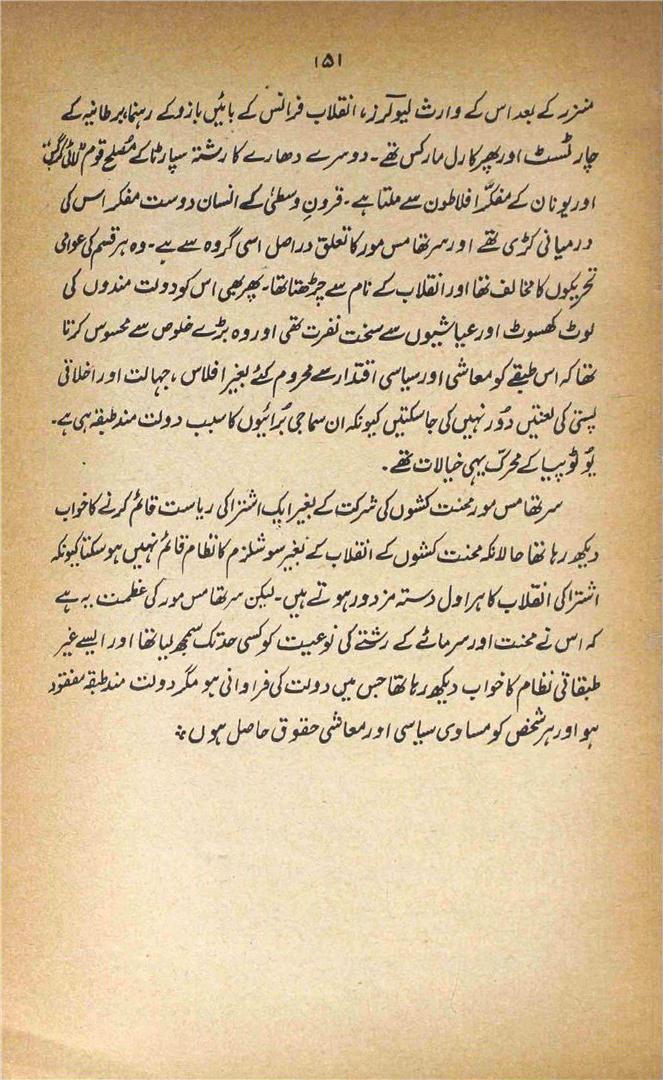 ۱۵۱
منزر کے بعد اس کے وارث لیولرز، انقلاب فرانس کے بائیں بازو کے رہنما، برطانیہ کے
چارٹسٹ اور پھر کارل مارکس تھے۔ دوسرے دھارے کا رشتہ سپارٹا کے مُصلح قوم
اور یونان کے مفکّر افلاطون سے ملتا ہے۔ قرونِ وسطیٰ کے انسان دوست مفکر اس کی
درمیانی کڑی تھے اور سر تھامس مور کا تعلق دراصل اسی گروہ سے ہے۔ وہ ہر قسم کی عوامی
تحریکوں کا مخالف تھا اور انقلاب کے نام سے چڑھتا تھا۔ پھر بھی اس کو دولت مندوں کی
لوٹ کھسوٹ اور عیاشیوں سے سخت نفرت تھی اور وہ بڑے خلوص سے محسوس کرتا
تھا کہ اس طبقے کو معاشی اور سیاسی اقتدار سے محروم کئے بغیر افلاس، جہالت اور اخلاقی
پستی کی لعنتیں دُور نہیں کی جا سکتیں کیونکہ ان سماجی بُرائیوں کا سبب دولت مند طبقہ ہی ہے۔
یُوٹوپیا کے محرّک یہی خیالات تھے۔
سر تھامس مور محنت کشوں کی شرکت کے بغیر ایک اشتراکی ریاست قائم کرنے کا خواب
دیکھ رہا تھا حالانکہ محنت کشوں کے انقلاب کے بغیر سوشلزم کا نظام قائم نہیں ہو سکتا کیونکہ
اشتراکی انقلاب کا ہراول دستہ مزدور ہوتے ہیں۔ لیکن سر تھامس مور کی عظمت یہ ہے
کہ اس نے محنت اور سرمائے کے رشتے کی نوعیت کو کسی حد تک سمجھ لیا تھا اور ایسے غیر
طبقاتی نظام کا خواب دیکھ رہا تھا جس میں دولت کی فراوانی ہو مگر دولت مند طبقہ مفقود
ہو اور ہر شخص کو مساوی سیاسی اور معاشی حقوق حاصل ہوں